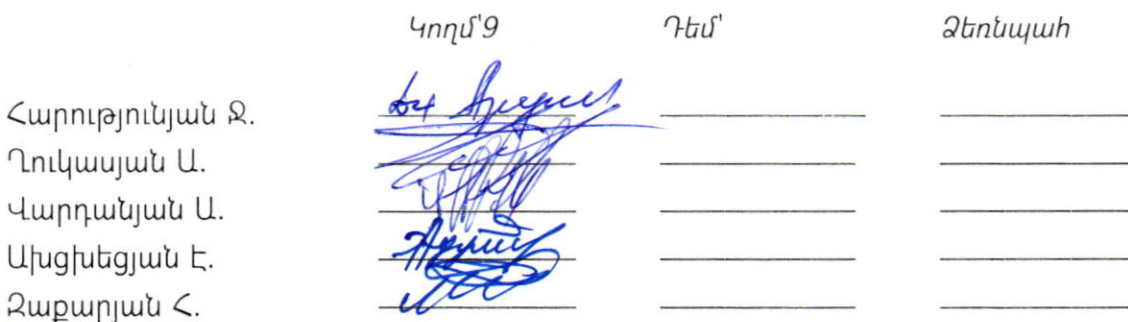 Կողմ՝9 Դեմ՝ Ձեռնպահ
Հարությունյան Ջ.
Ղուկասյան Ա.
Վարդանյան Ա.
Ախցխեցյան Է.
Զաքարյան Հ.